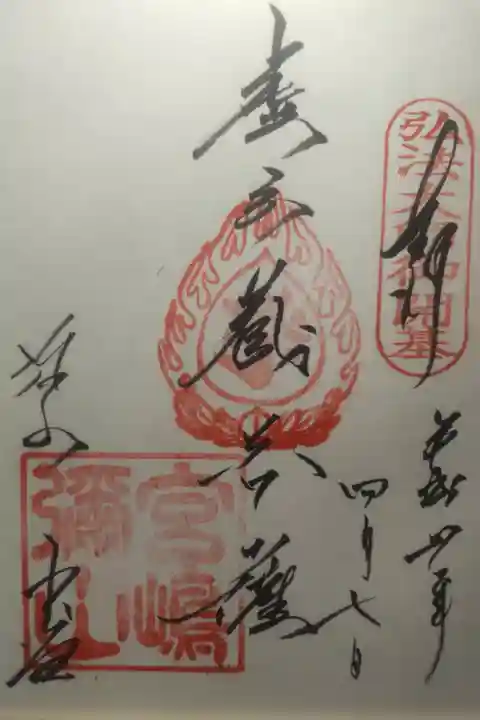 弘法大師御開基
奉拝
四月七日
虚空蔵菩薩
宮嶋
彌山
弥山
本堂